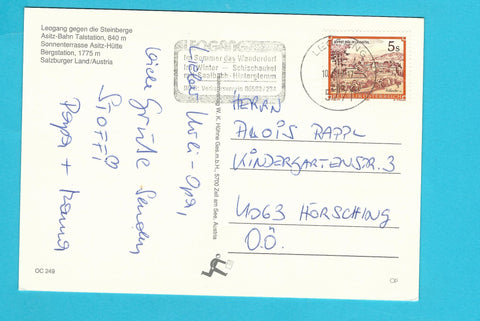 Leogang gegen die Steinberge
Asitz-Bahn Talstation, 840 m
Sonnenterrasse Asitz-Hütte
Bergstation, 1775 m
Salzburger Land/Austria
Im Sommer das Wanderdorf
Im Winter - Schischaukel
mit Saalbach-Hinterglemm
LEOGANG
5 S
Lieber Uili-Opa,
liebe Grüße senden
STOFFI
Papa + Mama
W. K. Hühne Ges.m.b.H., 5700 Zell am See, Austria
HERRN
ALOIS RAPPL
KINDERGARTENSTR. 3
4063 HÖRSCHING
O.Ö.
OC 249
OP